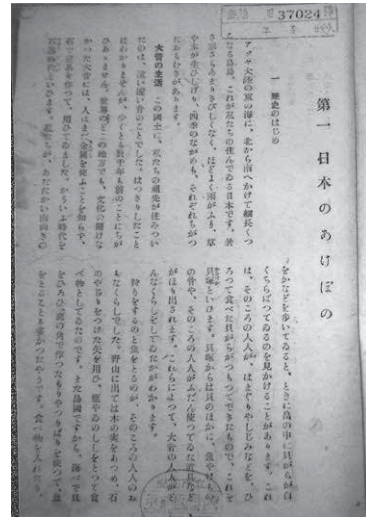 37024
第一 日本のあけぼの
一 歴史のはじめ
アジヤ大陸の東の海に、北から南へかけて細長くつ
らなる島島、これが私たちの住んでゐる日本です。暑
さ寒さもあまりきびしくなく、ほどよく雨がふり、草
や木が生ひしげり、四季のながめも、それぞれちがつ
たおもむきがあります。
大昔の生活 この國土に、私たちの祖先が住みつい
たのは、遠い遠い昔のことでした。はつきりしたこと
はわかりませんが、少くとも数千年も前のことにちが
ひありません。世界のどこの地方でも、文化の開けな
かつた大昔には、人はまだ金属を使ふことを知らず、
石で道具を作つて、用ひてゐました。かういふ時代を
石器時代といひます。私たちが、あたたかい南向きの
をかなどを歩いてゐると、ときに畠の中に貝がらが白
くちらばつてゐるのを見かけることがあります。これ
は、そのころの人人が、はまぐりやしじみなどを、ひ
ろつて食べた貝がらがつもつてできたもので、これを
貝塚といひます。貝塚からは貝のほかに、魚やけもの
の骨や、そのころの人人がふだん使つてゐた道具など
がほり出されます。これらによつて、大昔の人人がど
んなくらしをしてゐたかがわかります。
狩りをするのと魚をとるのが、そのころの人人のお
もなくらしでした。野山に出ては木の実をあつめ、石
のやじりをつけた矢を用ひ、鹿やゐのししをとつて食
べ物としてゐたのです。また島國ですから、海べで貝
をひろひ、鹿の角で作つたもりやつりばりを使つて、魚
をとることも多かつたやうです。食べ物を入れたり、